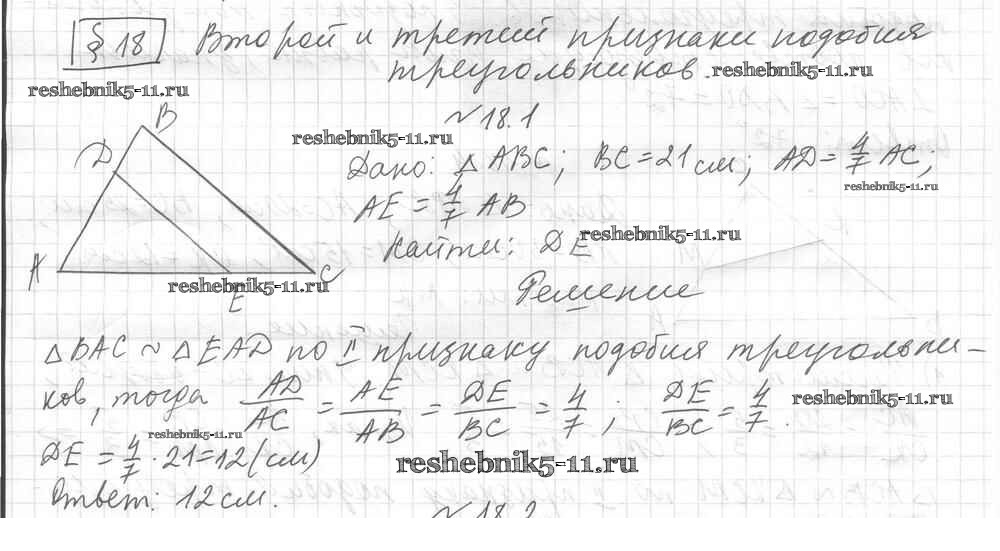 § 18 Второй и третий признаки подобия
треугольников.
reshebnik5-11.ru
reshebnik5-11.ru
№ 18.1
B
reshebnik5-11.ru
D
Дано: △ ABC; BC = 21 см; AD = 4/7 AC;
reshebnik5-11.ru
AE = 4/7 AB
Найти: DE
reshebnik5-11.ru
A
C
reshebnik5-11.ru
E
Решение
△ BAC ~ △ EAD по II признаку подобия треугольни-
ков, тогда AD/AC = AE/AB = DE/BC = 4/7; DE/BC = 4/7.
reshebnik5-11.ru
reshebnik5-11.ru
DE = 4/7 · 21 = 12 (см)
reshebnik5-11.ru
Ответ: 12 см.
№ 18.2